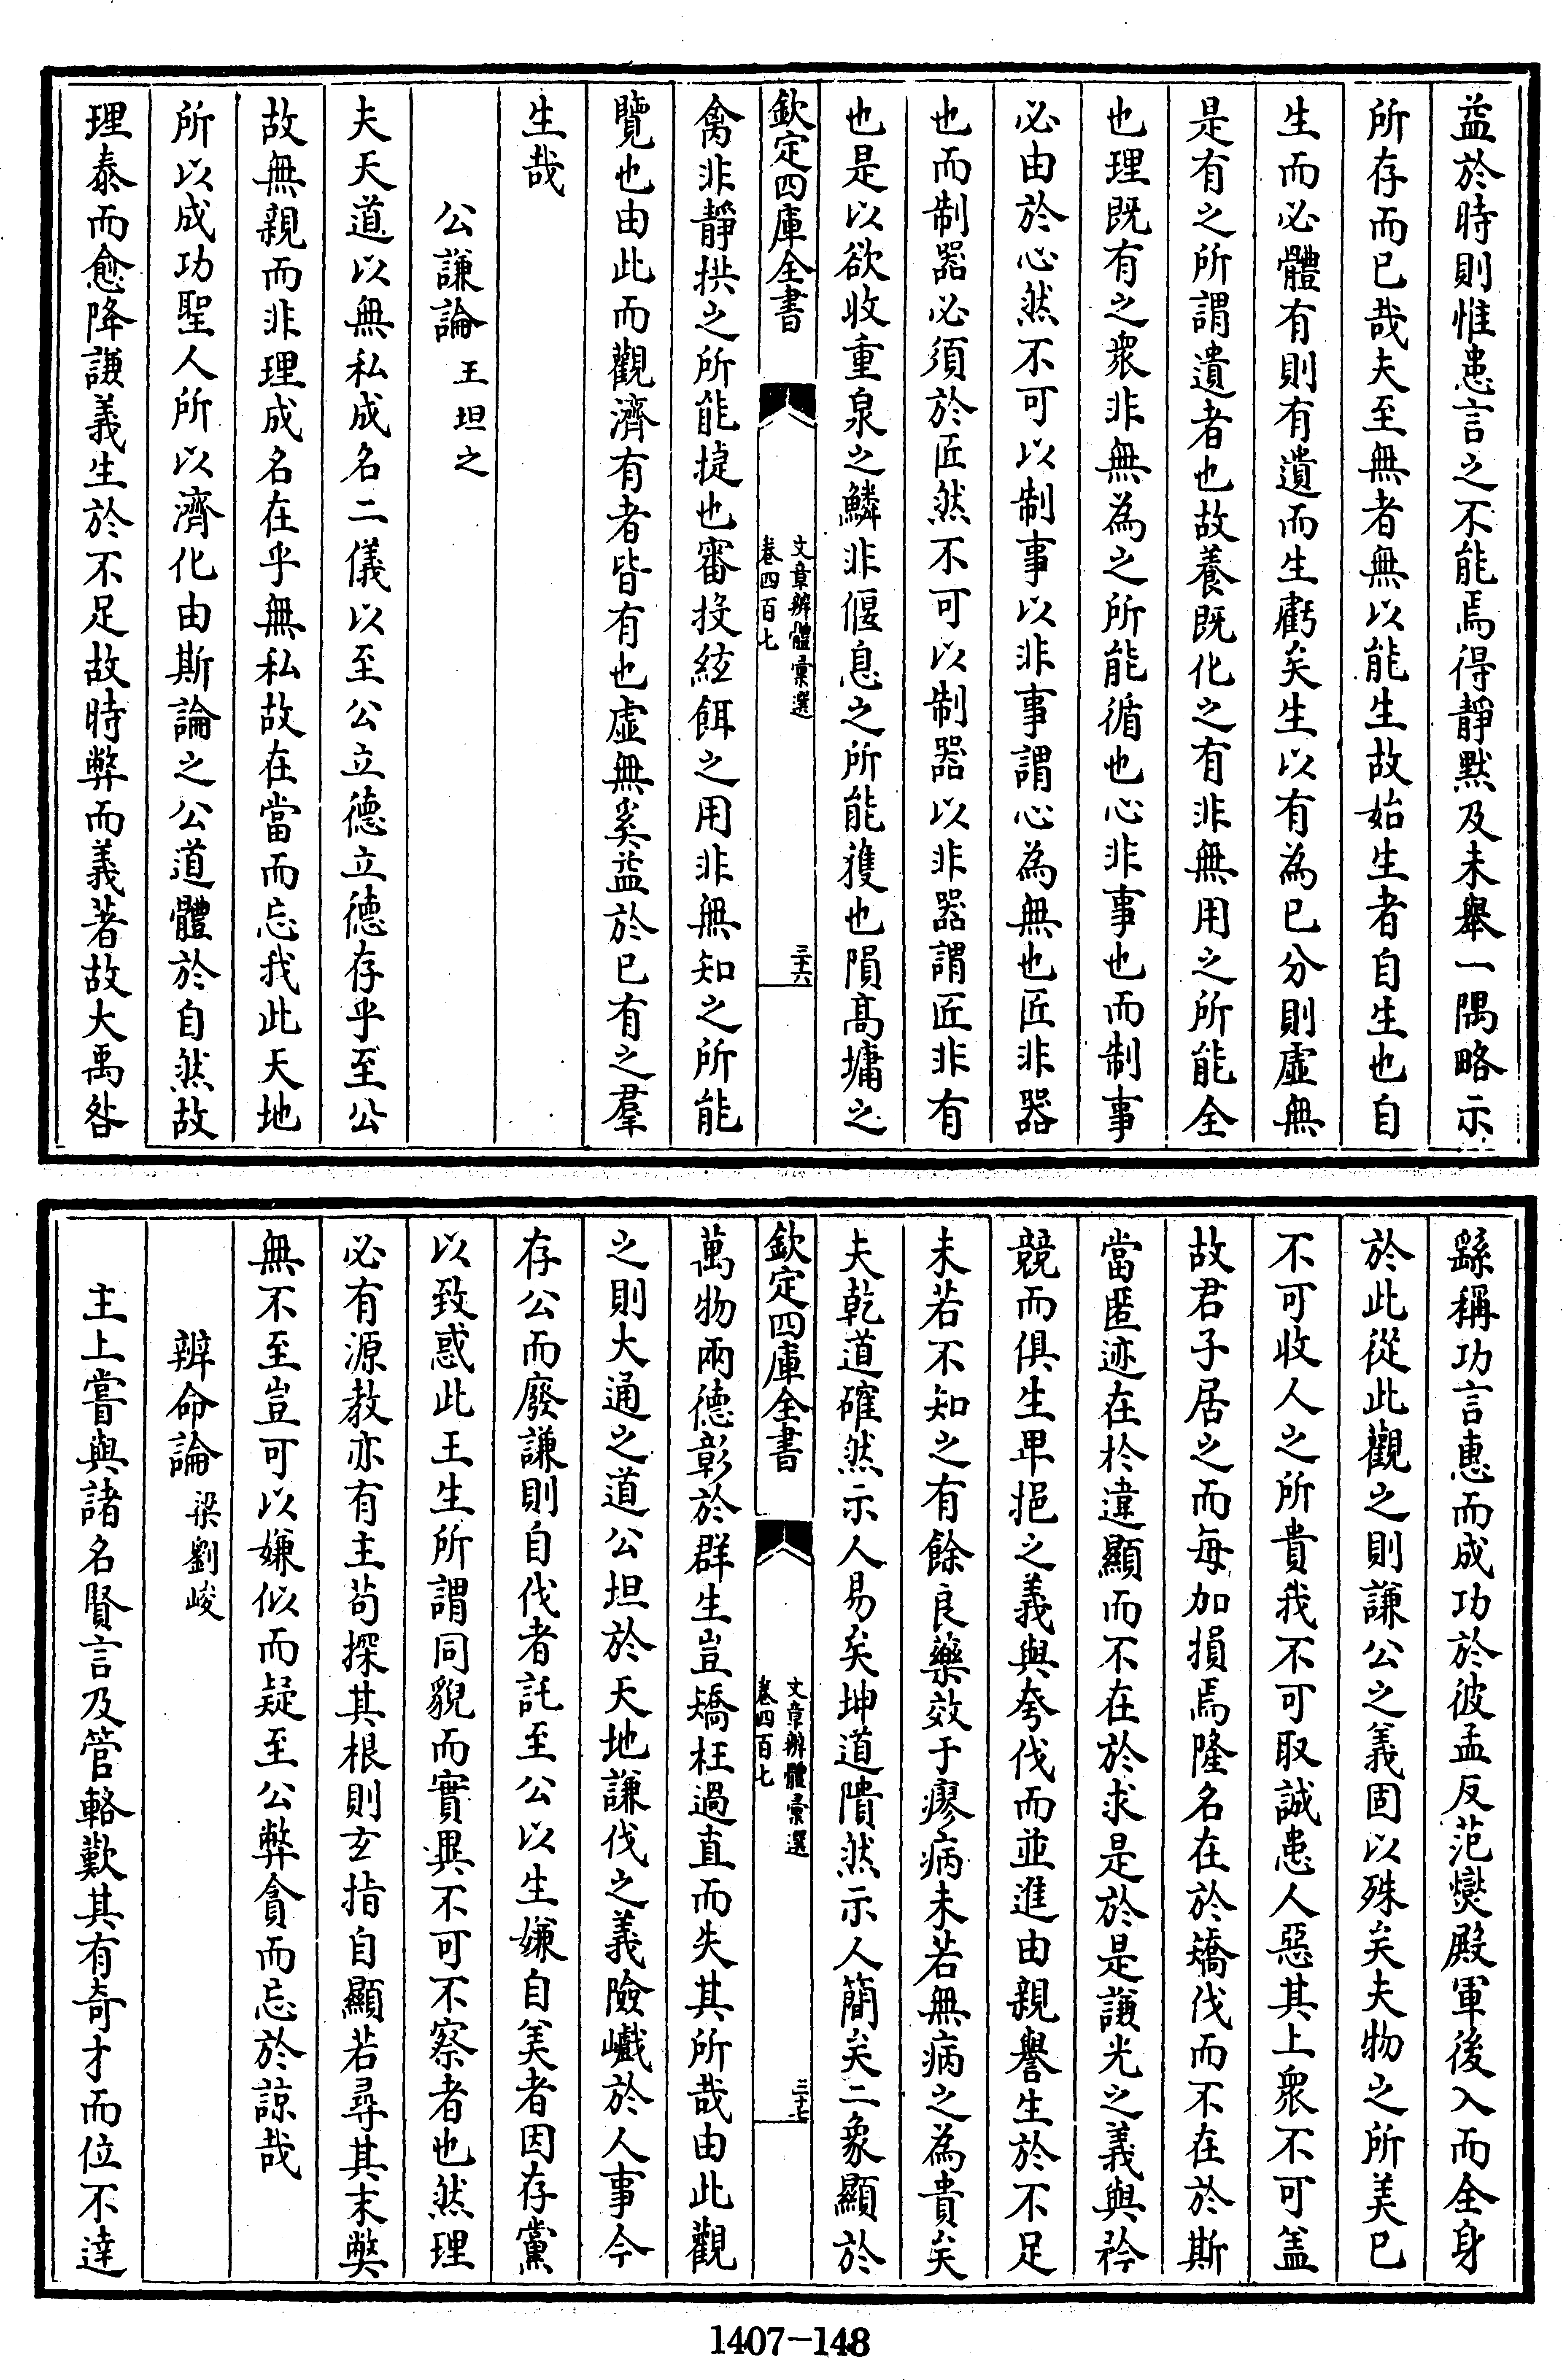 益於時則惟患言之不能焉得靜默及未舉一隅略示
所存而已哉夫至無者無以能生故始生者自生也自
生而必體有則有遺而生虧矣生以有為已分則虛無
是有之所謂遺者也故養既化之有非無用之所能全
也理既有之衆非無為之所能循也心非事也而制事
必由於心然不可以制事以非事謂心為無也匠非器
也而制器必須於匠然不可以制器以非器謂匠非有
也是以欲收重泉之鱗非偃息之所能獲也隕髙墉之
欽定四庫全書
文章辨體彙選
卷四百七
三十六
禽非靜拱之所能捷也審投絃餌之用非無知之所能
覽也由此而觀濟有者皆有也虛無奚益於已有之羣
生哉
公謙論 王坦之
夫天道以無私成名二儀以至公立德立德存乎至公
故無親而非理成名在乎無私故在當而忘我此天地
所以成功聖人所以濟化由斯論之公道體於自然故
理泰而愈降謙義生於不足故時弊而義著故大禹咎
繇稱功言惠而成功於彼孟反范燮殿軍後入而全身
於此從此觀之則謙公之義固以殊矣夫物之所美已
不可收人之所貴我不可取誠患人惡其上衆不可蓋
故君子居之而每加損焉隆名在於矯伐而不在於斯
當匿迹在於違顯而不在於求是於是謙光之義與矜
競而俱生卑挹之義與夸伐而並進由親譽生於不足
未若不知之有餘良藥效于瘳病未若無病之為貴矣
夫乾道確然示人易矣坤道隤然示人簡矣二象顯於
欽定四庫全書
文章辨體彙選
卷四百七
三十七
萬物兩德彰於群生豈矯枉過直而失其所哉由此觀
之則大通之道公坦於天地謙伐之義險巇於人事今
存公而廢謙則自伐者託至公以生嫌自美者因存黨
以致惑此王生所謂同貌而實異不可不察者也然理
必有源教亦有主苟探其根則玄指自顯若尋其末弊
無不至豈可以嫌似而疑至公弊貪而忘於諒哉
辨命論 梁劉峻
主上嘗與諸名賢言及管輅歎其有奇才而位不達
1407-148